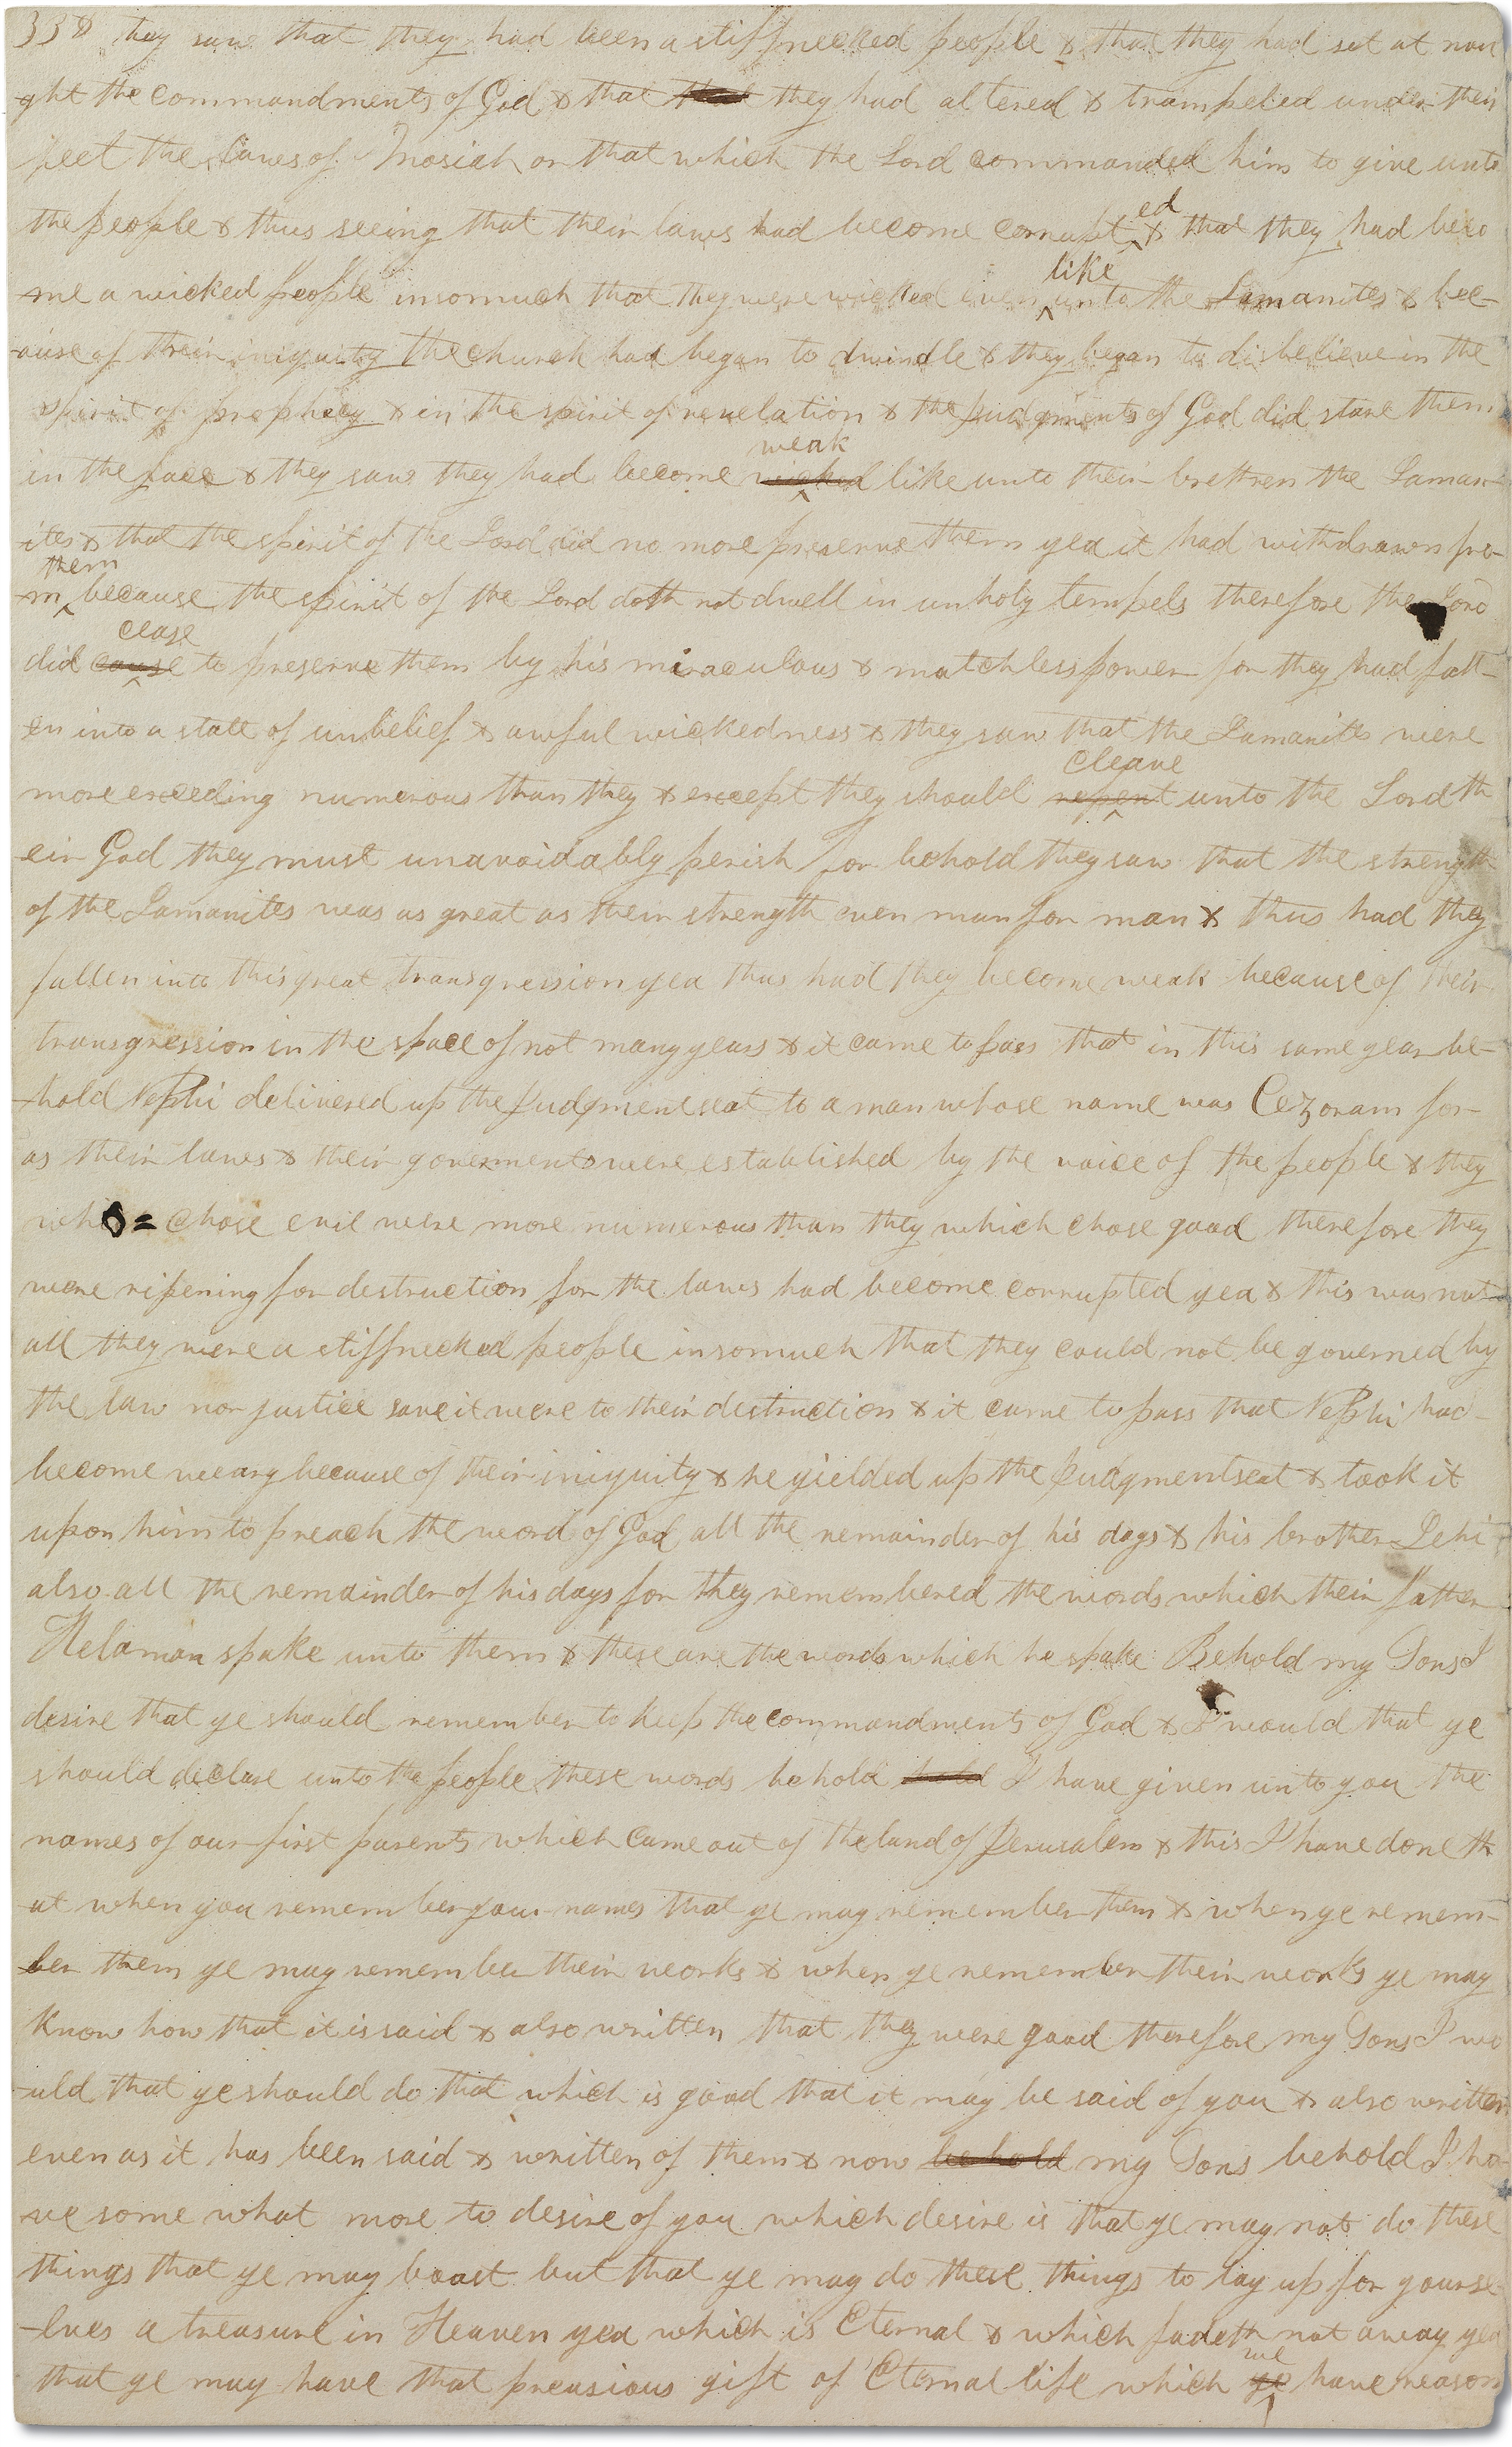 338 they saw that they had been a stiffnecked people & that they had set at nou
ght the commandments of God & that that they had altered & trampeled under their
feet the laws of Mosiah or that which the Lord commanded him to give unto
the people & thus seeing that their laws had become corrupt ed & that they had beco
me a wicked people insomuch that they were wicked even like unto the Lamanites & bec-
ause of their iniquity the church had began to dwindle & they began to disbelieve in the
spirit of prophecy & in the spirit of revelation & the judgments of God did stare them
in the face & they saw they had become wicked weak like unto their brethren the Laman-
ites & that the spirit of the Lord did no more preserve them yea it had withdrawn fro-
m them because the spirit of the Lord doth not dwell in unholy tempels therefore the Lord
did cause cease to preserve them by his miraculous & matchless power for they had fall-
en into a state of unbelief & awful wickedness & they saw that the Lamanites were
more exceeding numerous than they & except they should repent cleave unto the Lord th
-eir God they must unavoidably perish for behold they saw that the strength
of the Lamanites was as great as their strength even man for man & thus had they
fallen into this great transgression yea thus had they become weak because of their
transgression in the space of not many years & it came to pass that in this same year be-
-hold Nephi delivered up the judgment seat to a man whose name was Cezoram for
as their laws & their goverments were established by the voice of the people & they
who = chose evil were more numerous than they which chose good therefore they
were ripening for destruction for the laws had become corrupted yea & this was not
all they were a stiffnecked people insomuch that they could not be governed by
the law nor justice save it were to their destruction & it came to pass that Nephi had
become weary because of their iniquity & he yielded up the judgment seat & took it
upon him to preach the word of God all the remainder of his days & his brother Lehi
also all the remainder of his days for they remembered the words which their father
Helaman spake unto them & these are the words which he spake Behold my Sons I
desire that ye should remember to keep the commandments of God & I would that ye
should declare unto the people these words behold hold I have given unto you the
names of our first parents which came out of the land of Jerusalem & this I have done th
-at when you remember your names that ye may remember them & when ye remem-
ber them ye may remember their works & when ye remember their works ye may
know how that it is said & also written that they were good therefore my Sons I wo
-uld that ye should do that which is good that it may be said of you & also written
even as it has been said & written of them & now behold my Sons behold I ha
-ve some what more to desire of you which desire is that ye may not do these
things that ye may boast but that ye may do these things to lay up for yourse
-lves a treasure in Heaven yea which is Eternal & which fadeth not away yea
that ye may have that preasious gift of Eternal life which ye we have reason